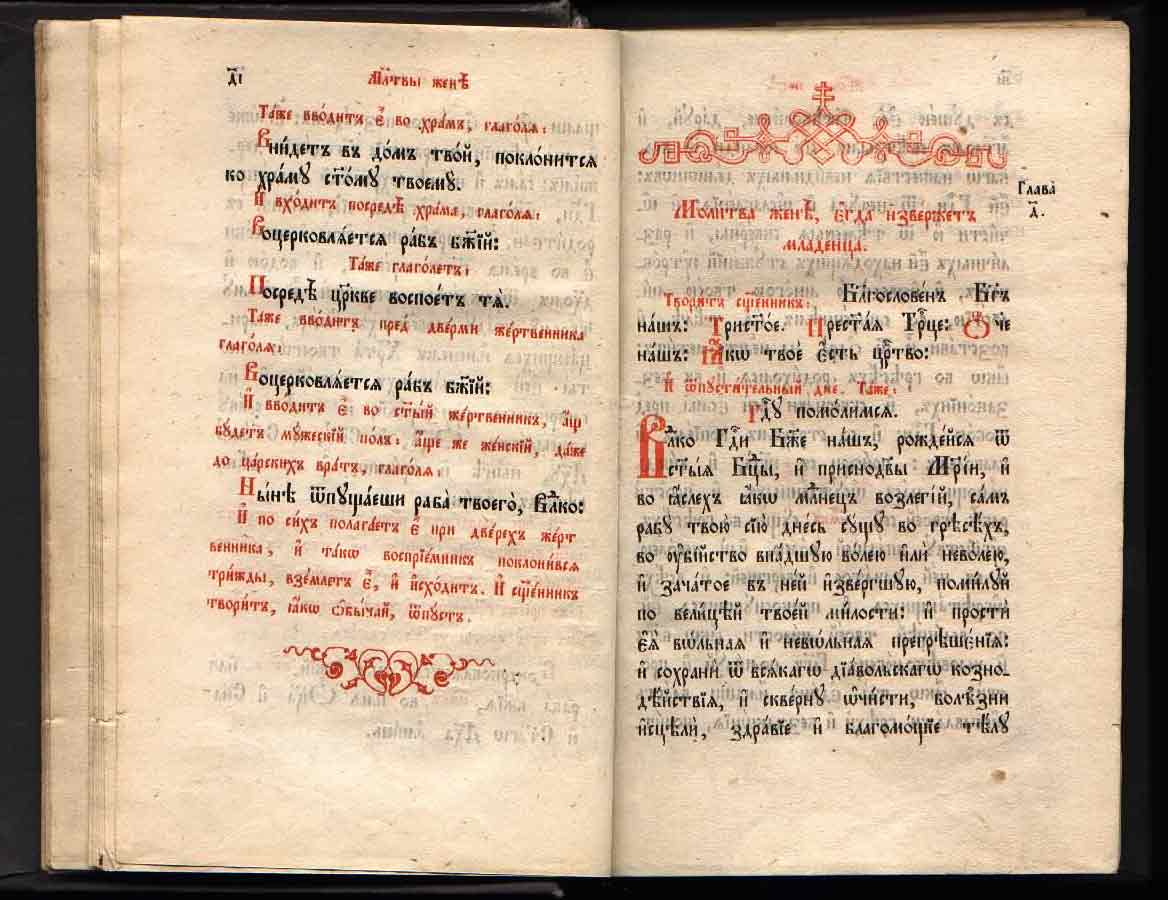 д҃і
Мл҃твы женѣ
Та́же вводитъ є҆̀ во хра́мъ, глаго́лѧ:
Вни́детъ въ до́мъ тво́й, поклони́тсѧ
ко хра́мꙋ ст҃о́мꙋ твоемꙋ̀.
И҆ вхо́дитъ посредѣ̀ хра́ма, глаго́лѧ:
Воцерковлѧ́етсѧ ра́бъ бж҃їй:
Та́же глаго́летъ:
Посредѣ̀ цр҃кве воспоє́тъ тѧ̀.
Та́же вво́дитъ пред̾ две́рми же́ртвенника
глаго́лѧ:
Воцерковлѧ́етсѧ ра́бъ бж҃їй:
И҆ вво́дитъ є҆̀ во ст҃ы́й же́ртвенникъ, а҆́щ
бꙋ́детъ мꙋ́жескїй по́лъ: а҆́ще же же́нскїй, да́же
до ца́рскихъ вра́тъ, глаго́лѧ:
Ны́нѣ ѿпꙋща́еши раба̀ твоего̀, вл҃ко:
И҆ по си́хъ полага́етъ є҆̀ при две́рехъ же́рт
венника, и҆ та́кѡ воспрїе́мникъ поклони́всѧ
три́жды, взе́млетъ є҆̀, и҆ и҆схо́дитъ. И҆ сщ҃е́нникъ
твори́тъ, ꙗ҆́кѡ ѻ҆бы́чай, ѿпꙋ́стъ.
Глава̀
д҃.
Моли́тва женѣ̀, є҆гда̀ и҆зве́ржетъ
младе́нца.
Твори́тъ сщ҃е́нникъ: Благослове́нъ Бг҃ъ
на́шъ: Трист҃о́е. Прест҃а́ѧ Трⷪ҇це: Ѻ҆́че
на́шъ: Ꙗ҆́кѡ твоѐ є҆́сть црⷭ҇тво:
И҆ ѿпꙋсти́тельный днѐ. Та́же:
Гдⷭ҇ꙋ помо́лимсѧ.
Влⷣко Гдⷭ҇и Бж҃е на́шъ, рожде́йсѧ ѿ
ст҃ы́ѧ Бцⷣы, и҆ приснодв҃ы Мр҃і́и, и҆
во ꙗ҆́слехъ ꙗ҆́кѡ млⷣнецъ возлегі́й, са́мъ
рабꙋ̀ твою̀ сїю̀ дне́сь сꙋ́щꙋ во грѣсѣ́хъ,
во ᲂу҆бі́йство впа́дшꙋю во́лею и҆лѝ нево́лею,
и҆ зача́тое въ не́й и҆зве́ргшꙋю, поми́лꙋй
по вели́цѣй твое́й ми́лости: и҆ простѝ
є҆ѧ̀ вѡ́льнаѧ и҆ невѡ́льнаѧ прегрѣшє́нїѧ:
и҆ сохранѝ ѿ всѧ́кагѡ дїа́вольскагѡ козно-
дѣ́йствїѧ, и҆ скве́рнꙋ ѡ҆чи́сти, болѣ̑зни
и҆сцѣлѝ, здра́вїе и҆ благомо́щїе тѣ́лꙋ